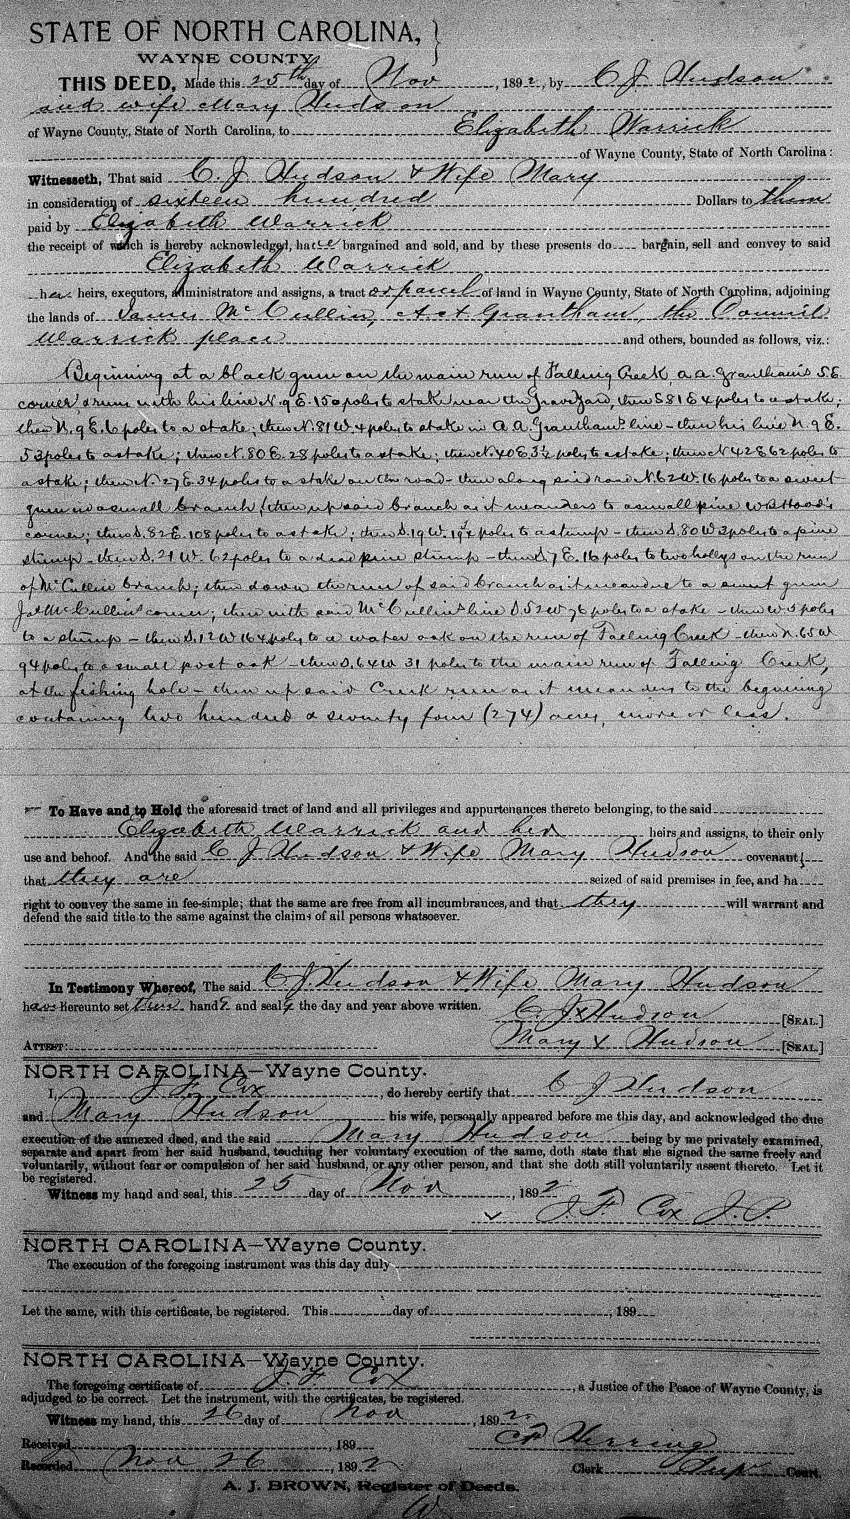 STATE OF NORTH CAROLINA,
WAYNE COUNTY.
THIS DEED, Made this 25th day of Nov, 1892, by C J Hudson
and wife Mary Hudson
of Wayne County, State of North Carolina, to Elizabeth Warrick
of Wayne County, State of North Carolina:
Witnesseth, That said C. J Hudson & Wife Mary
in consideration of sixteen hundred Dollars to them
paid by Elizabeth Warrick
the receipt of which is hereby acknowledged, have bargained and sold, and by these presents do bargain, sell and convey to said
Elizabeth Warrick
her heirs, executors, administrators and assigns, a tract or parcel of land in Wayne County, State of North Carolina, adjoining
the lands of James McCullin, Grantham, the Council
Warrick place and others, bounded as follows, viz.:
Beginning at a black gum on the main run of Falling Creek, A. A. Grantham's S E
corner, & runs with his line N. 9 E. 150 poles to stake near the Graveyard, then S 81 E 4 poles to a stake;
then N. 9 E. 6 poles to a stake; then N. 81 W. 4 poles to stake in A. A. Grantham's line - then his line N. 9 E.
53 poles to a stake; then N. 80 E. 28 poles to a stake; then N. 40 E 3½ poles to a stake; then N 42 E 62 poles to
a stake; then N. 27 E. 34 poles to a stake on the road - then along said road N. 62 W. 16 poles to a sweet
gum in a small branch; then up said branch as it meanders to a small pine W B Hood's
corner; then S. 82 E. 108 poles to a stake; then S. 19 W. poles to a stump - then S. 80 W 3 poles to a pine
stump - then S. 21 W. 62 poles to a dead pine stump - then S 7 E. 16 poles to two hollys on the run
of McCullin branch; then down the run of said branch as it meanders to a sweet gum
Jas McCullin's corner; then with said McCullin's line S. 52 W 76 poles to a stake - then W 5 poles
to a stump - then S. 12 W 164 poles to a water oak on the run of Falling Creek - then N. 65 W
94 poles to a small post oak - then S. 64 W 31 poles to the main run of Falling Creek,
at the fishing hole - then up said Creek run as it meanders to the beginning
containing two hundred & seventy four (274) acres, more or less.
To Have and to Hold the aforesaid tract of land and all privileges and appurtenances thereto belonging, to the said
Elizabeth Warrick and her heirs and assigns, to their only
use and behoof. And the said C J Hudson & Wife Mary Hudson covenant
that they are seized of said premises in fee, and ha
right to convey the same in fee-simple; that the same are free from all incumbrances, and that they will warrant and
defend the said title to the same against the claims of all persons whatsoever.
In Testimony Whereof, The said C. J. Hudson & Wife Mary Hudson
have hereunto set their hands and seals the day and year above written.
C. J x Hudson [SEAL.]
ATTEST: Mary x Hudson [SEAL.]
NORTH CAROLINA—Wayne County.
I, J. F. Cox, do hereby certify that C J Hudson
and Mary Hudson his wife, personally appeared before me this day, and acknowledged the due
execution of the annexed deed, and the said Mary Hudson being by me privately examined,
separate and apart from her said husband, touching her voluntary execution of the same, doth state that she signed the same freely and
voluntarily, without fear or compulsion of her said husband, or any other person, and that she doth still voluntarily assent thereto. Let it
be registered.
Witness my hand and seal, this 25 day of Nov, 1892
J. F. Cox J. P.
NORTH CAROLINA—Wayne County.
The execution of the foregoing instrument was this day duly
Let the same, with this certificate, be registered. This day of, 189
NORTH CAROLINA—Wayne County.
The foregoing certificate of J. F. Cox, a Justice of the Peace of Wayne County, is
adjudged to be correct. Let the instrument, with the certificates, be registered.
Witness my hand, this 26 day of Nov, 1892
Received, 189 Herring
Recorded Nov 26 1892 Clerk Supr Court.
A. J. BROWN, Register of Deeds.
W